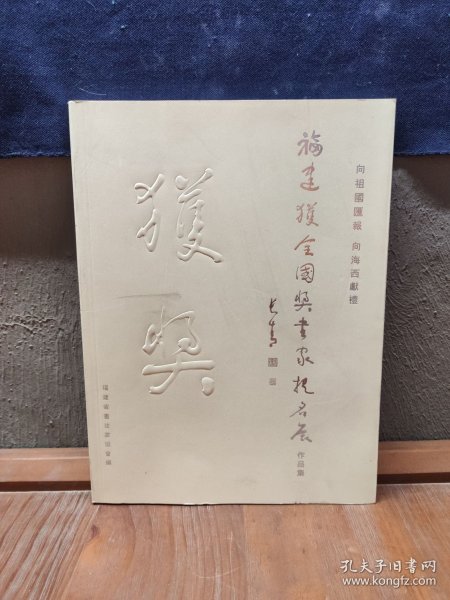 向祖國匯報 向海西獻禮
福建獲全國獎書家提名展
作品集
獲獎
福建省書法家協會編
孔夫子旧书网
www.kongfz.com